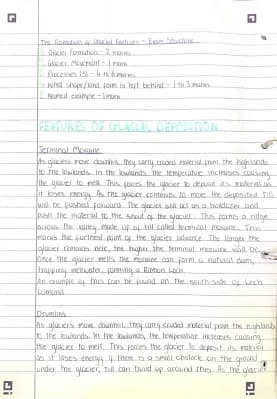 The Formation of Glacial Features - Exam Structure
Glacier Formation - 2 marks
Glacier Movement - 1 mark
Processes (S) - 4 to 6 marks
What shape/land form is left behind - 1 to 3 marks
Named example - 1 mark
FEATURES OF GLACIAL DEPOSITION
Terminal Moraine
As glaciers move downhill, they carry eroded material from the highlands
to the lowlands. In the lowlands, the temperature increases causing
the glacier to melt. This forces the glacier to deposit its material as
it loses energy. As the glacier continues to move the deposited till
will be pushed forward. The glacier will act as a bulldozer and
push the material to the snout of the glacier. This forms a ridge
across the valley made up of till called terminal moraine. This
marks the furthest point of the glaciers advance. The longer the
glacier remains here, the higher the terminal moraine will be.
Once the glacier melts the moraine can form a natural dam,
trapping meltwater, forming a Ribbon Loch.
An example of this can be found on the south-side of Loch
Lomond.
Drumlins
As glaciers move downhill, they carry eroded material from the highlands
to the lowlands. In the lowlands, the temperature increases causing
the glacier to melt. This forces the glacier to deposit its material
as it loses energy. If there is a small obstacle on the ground
under the glacier, till can build up around this. As the glacier